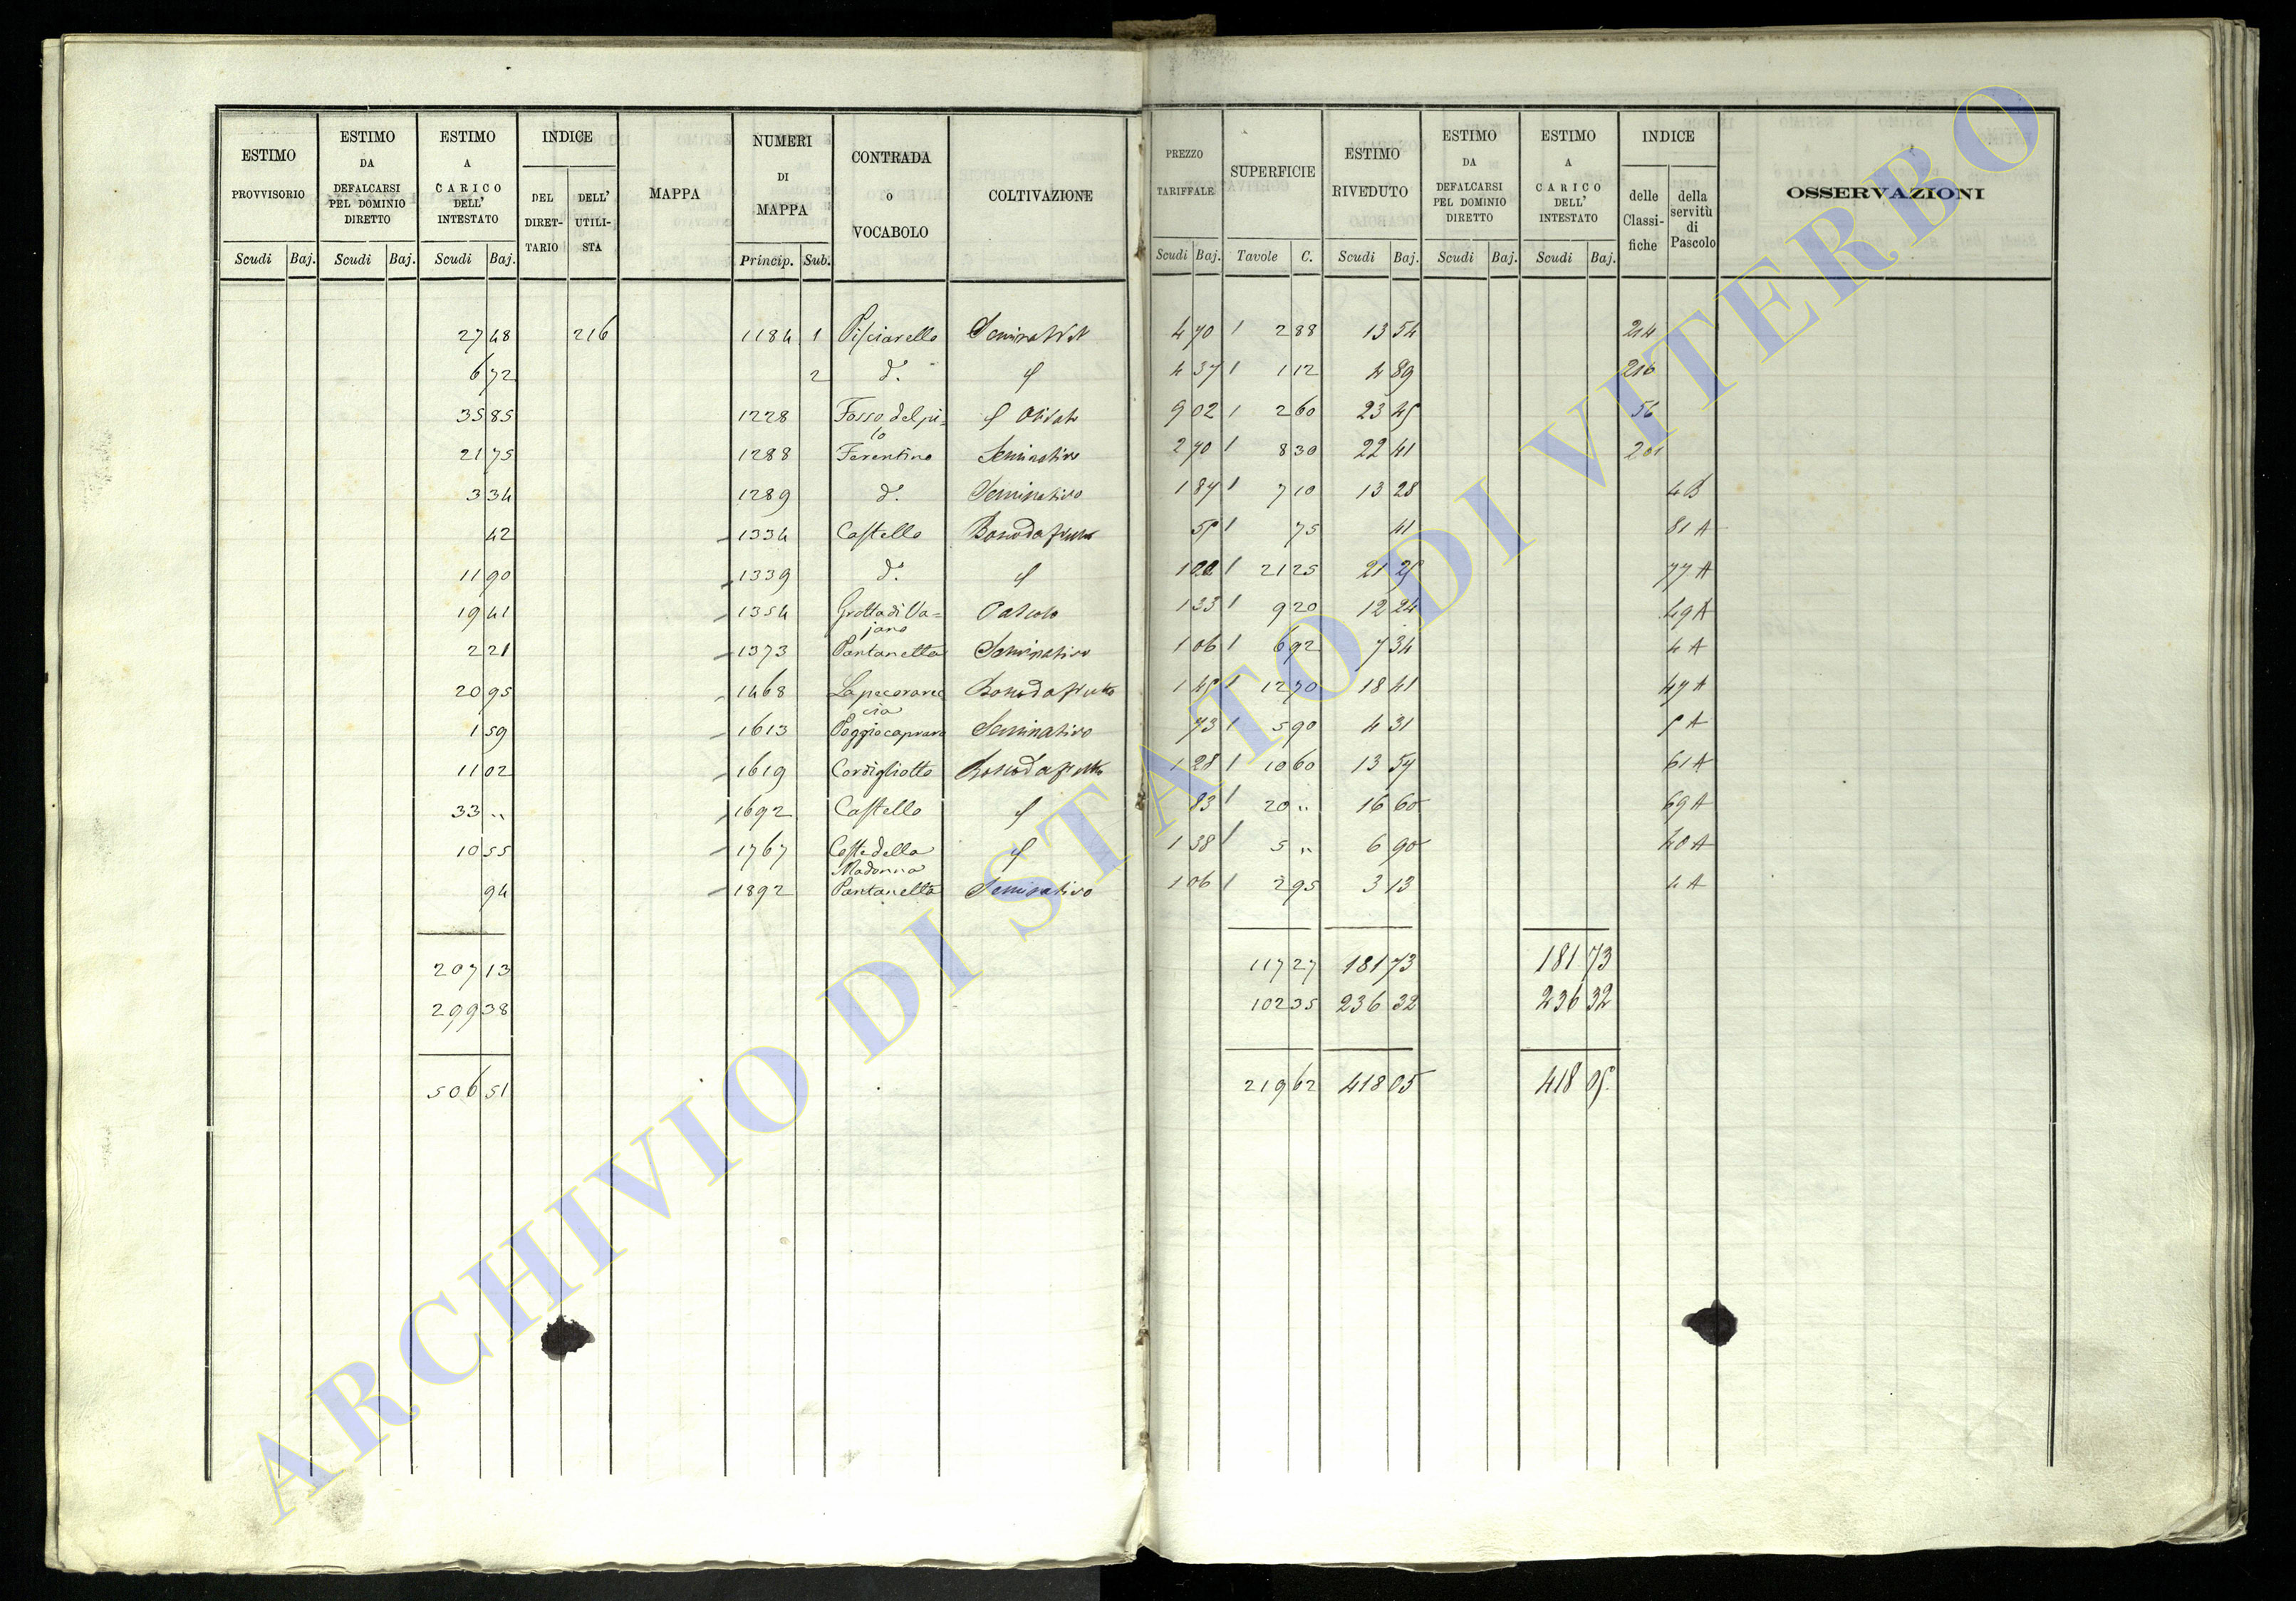 ESTIMO PROVVISORIO | ESTIMO DA DEFALCARSI PEL DOMINIO DIRETTO | ESTIMO A CARICO DELL' INTESTATO | INDICE | MAPPA | NUMERI DI MAPPA | CONTRADA o VOCABOLO | COLTIVAZIONE | PREZZO TARIFFALE | SUPERFICIE | ESTIMO RIVEDUTO | ESTIMO DA DEFALCARSI PEL DOMINIO DIRETTO | ESTIMO A CARICO DELL' INTESTATO | INDICE | OSSERVAZIONI
DEL DIRET- TARIO | DELL' UTILI- STA | delle Classi- fiche | della servitù di Pascolo
Scudi | Baj. | Scudi | Baj. | Scudi | Baj. | Princip. | Sub. | Scudi | Baj. | Tavole | C. | Scudi | Baj. | Scudi | Baj. | Scudi | Baj.
27 48 | 216 | 1184 | 1 | Pisciarello | 4 70 | 2 88 | 13 54 | 214
6 72 | 2 | d.° | 4 37 | 1 12 | 4 89 | 216
35 85 | 1228 | Fosso del pi= lo | Olivato | 9 02 | 2 60 | 23 45 | 56
21 75 | 1288 | Ferentino | Seminativo | 2 70 | 8 30 | 22 41 | 201
3 34 | 1289 | d.° | Seminativo | 1 87 | 7 10 | 13 28 | 4 B
42 | 1334 | Castello | Bosco da frutto | 55 | 75 | 41 | 81 A
11 90 | 1339 | d.° | 1 00 | 21 25 | 21 25 | 77 A
19 41 | 1354 | Grotta di Va= jano | Pascolo | 1 33 | 9 20 | 12 24 | 49 A
2 21 | 1373 | Pantanella | Seminativo | 1 06 | 6 92 | 7 34 | 4 A
20 95 | 1468 | La pecorarec cia | Bosco da frutto | 1 45 | 12 70 | 18 41 | 47 A
1 59 | 1613 | Poggio capraro | Seminativo | 73 | 5 90 | 4 31 | 5 A
11 02 | 1619 | Cordigliotto | Bosco da frutto | 1 28 | 10 60 | 13 57 | 61 A
33 " | 1692 | Castello | 83 | 20 " | 16 60 | 69 A
10 55 | 1767 | Coste della Madonna | 1 38 | 5 " | 6 90 | 40 A
94 | 1892 | Pantanella | Seminativo | 1 06 | 2 95 | 3 13 | 4 A
207 13 | 117 27 | 181 73 | 181 73
299 38 | 102 35 | 236 32 | 236 32
506 51 | 219 62 | 418 05 | 418 05
ARCHIVIO DI STATO DI VITERBO